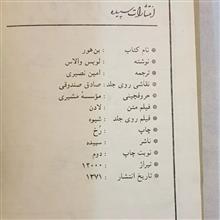 انتشارات سپیده
* نام کتاب : بن‌هور
* نوشته : لویس والاس
* ترجمه : امین نصیری
* نقاشی روی جلد : صادق صندوقی
* حروفچینی : مؤسسهٔ مشیری
* فیلم متن : لادن
* فیلم روی جلد : شیوه
* چاپ : رُخ
* ناشر : سپیده
* نوبت چاپ : دوم
* تیراژ : ۱۲۰۰۰
* تاریخ انتشار : ۱۳۷۱